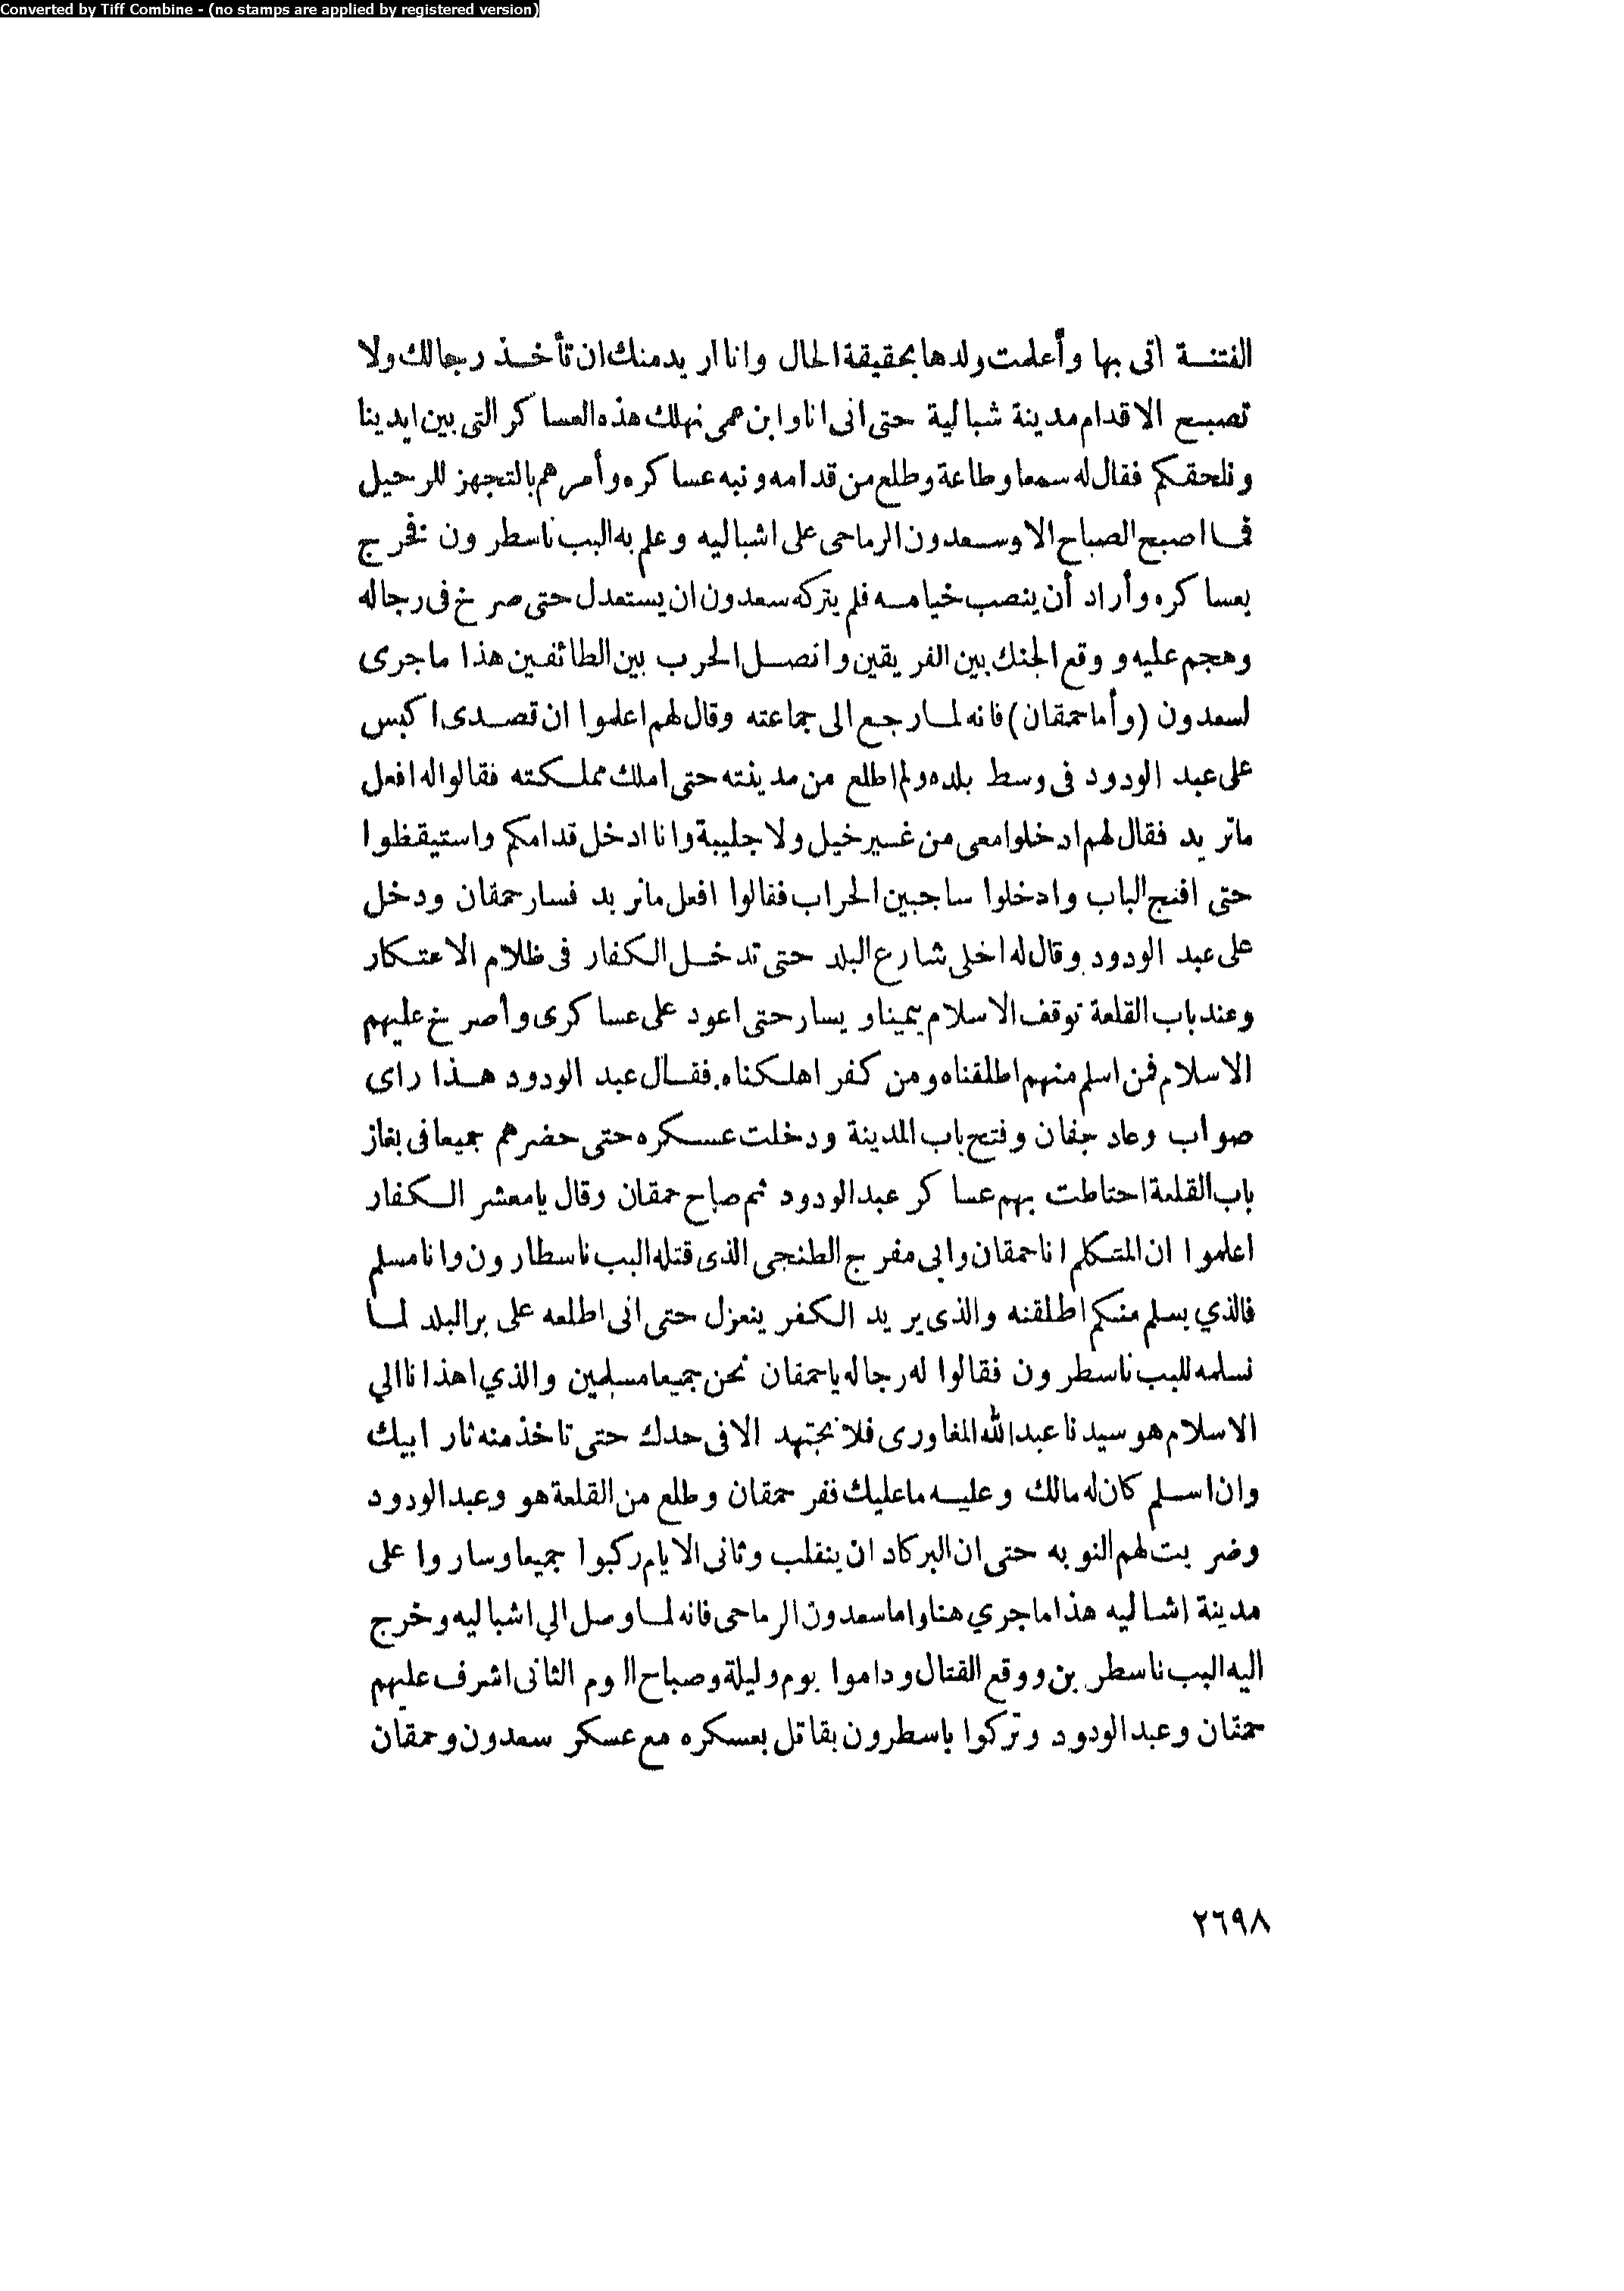 Converted by Tiff Combine - (no stamps are applied by registered version)
الفتنــة اتى بها وأعلمت ولدها بحقيقة الحال وانا اريد منك ان تأخــذ رجالك ولا
تصبــع الاقدام مدينة شبالية حتى انى انا وابن عمى نهلك هذه العساكر التى بين ايدينا
ونلحقكم فقال له سمعا وطاعة وطلع من قدامه ونبه عساكره وأمرهم بالتجهز للرحيل
فمــا اصبح الصباح الا وســعدون الرماحى على اشباليه وعلم به البب ناسطرون نخرج
بعساكره وأراد أن ينصب خيامــه فلم يتركه سعدون ان يستعدل حتى صرخ فى رجاله
وهجم عليه ووقع الجنك بين الفريقين وانصــل الحرب بين الطائفــين هذا ماجرى
لسعدون (وأما حمقان) فانه لمــا رجــع الى جماعته وقال لهم اعلموا ان قصــدى اكبس
على عبد الودود فى وسط بلده ولم اطلع من مدينته حتى املك مملــكته فقالوا له افعل
ماتريد فقال لهم ادخلوا معى من غــير خيل ولا جليبة وانا ادخل قدامكم واستيقظوا
حتى افتح الباب وادخلوا ساجبين الحراب فقالوا افعل ماتريد فسار حمقان ودخل
على عبد الودود وقال له اخلى شارع البلد حتى تدخــل الــكفار فى ظلام الاعتــكار
وعند باب القلعة توقف الاسلام يمينا ويسار حتى اعود على عساكرى وأصرخ عليهم
الاسلام فمن اسلم منهم اطلقناه ومن كفر اهلــكناه فقــال عبد الودود هــذا راى
صواب وعاد جفان وفتح باب المدينة ودخلت عســكره حتى حضرهم جميعا فى بغاز
باب القلعة احتاطت بهم عساكر عبد الودود ثم صاح حمقان وقال يامعشر الــكفار
اعلموا ان المتــكلم انا حمقان وابى مفرج الطنجى الذى قتله البب ناسطارون وانا مسلم
فالذي يسلم منــكم اطلقنه والذى يريد الــكفر ينعزل حتى انى اطلعه على برالبلد لمــا
نسلمه للبب ناسطرون فقالوا له رجاله ياحمقان نحن جميعا مسلمين والذي اهذانا الي
الاسلام هو سيدنا عبد الله المغاورى فلا نجتهد الا فى حدك حتى تاخذ منه ثار ابيك
وان اســلم كان له مالك وعليــه ما عليك ففرحمقان وطلع من القلعة هو وعبد الودود
وضربت لهم النوبه حتى ان البر كاد ان ينقلب وثانى الايام ركبوا جميعا وساروا على
مدينة اشــاليه هذا ماجري هنا واما سعدون الرماحى فانه لمــا وصل الي اشباليه وخرج
اليه البب ناسطرين ووقع القتال وداموا يوم وليلة وصباح اليوم الثانى اشرف عليهم
حمقان وعبد الودود وتركوا باسطرون يقاتل بعسكره مع عسكر سعدون وحمقان
٢٦٩٨